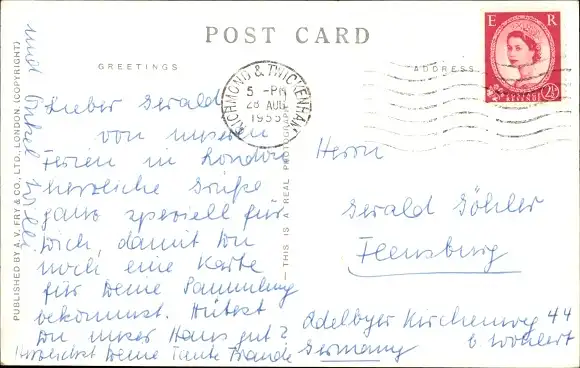 POST CARD
GREETINGS
ADDRESS
E R
POSTAGE
REVENUE
2½
RICHMOND & TWICKENHAM
5 - PM
28 AUG
1955
PUBLISHED BY A. V. FRY & CO., LTD., LONDON. (COPYRIGHT)
THIS IS A REAL PHOTOGRAPH
Lieber Gerald
von unseren
Ferien in London
herzliche Grüße
ganz speziell für
Dich, damit Du
noch eine Karte
für Deine Sammlung
bekommst. Hütest
Du unser Haus gut?
Herzlichst Deine Tante
und Onkel Willi
Herrn
Gerald Göhler
Flensburg
Adelbyer Kirchenweg 44
b. Wohlert
Germany